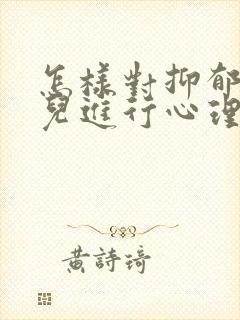 怎樣對抑郁
兒進行心理
黃詩琦